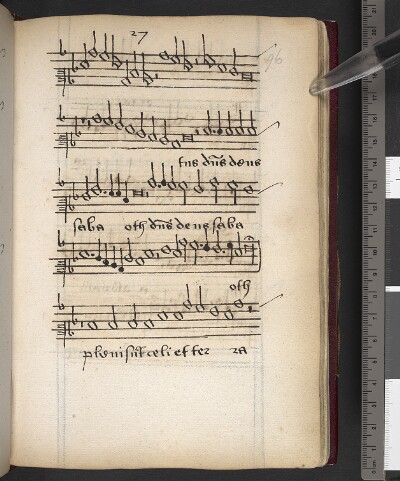 27
96
tus dn̄s deus
saba oth dn̄s deus saba
oth
pleni su̅t celi et ter ra